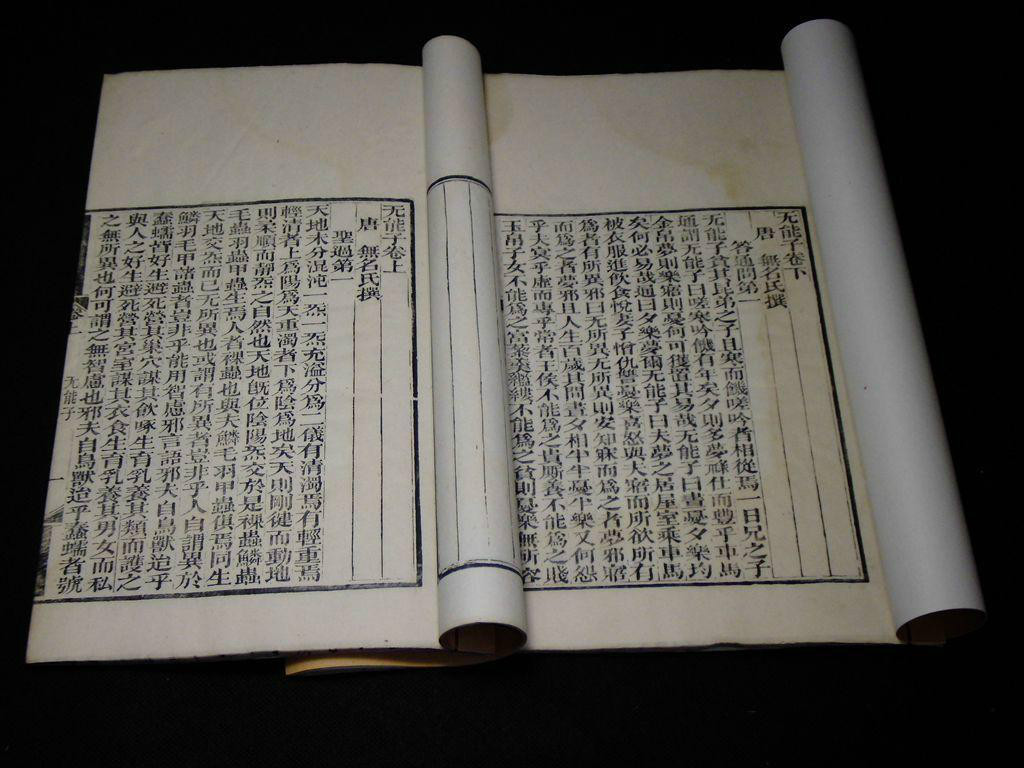 无能子卷下
唐　無名氏撰
答通問第一
无能子貧其昆弟之子且寒而饑嗟吟者相從焉一日兄之子
通謂无能子曰嗟寒吟饑有年矣夕則多夢祿仕而豐乎車馬
金帛夢則樂寤則憂何可獲置其易哉无能子曰晝憂夕樂均
矣何必易哉通曰夕樂夢爾无能子曰夫夢之居屋室乘車馬
被衣服進飲食悅妻子憎仇讐憂樂喜怒與夫寤而所欲所有
爲者有所異邪曰无所異无所異則安知寐而爲之者夢邪寤
而爲之者夢邪且人生百歲其間晝夕相半半憂半樂又何怨
乎夫冥乎虛而專乎常者王侯不能爲之貴厮養不能爲之賤
玉帛子女不能爲之富藜羹縕縷不能爲之貧則憂樂無所容
无能子卷上
唐　無名氏撰
聖過第一
天地未分混沌一炁一炁充溢分爲二儀有清濁焉有輕重焉
輕清者上爲陽爲天重濁者下爲陰爲地矣天則剛健而動地
則柔順而靜炁之自然也天地旣位陰陽炁交於是裸蟲鱗蟲
毛蟲羽蟲甲蟲生焉人者裸蟲也與夫鱗毛羽甲蟲俱焉同生
天地交炁而已无所異也或謂有所異者豈非乎人自謂異於
鱗羽毛甲諸蟲者豈非乎能用智慮邪言語邪夫自鳥獸迨乎
蠢蠕皆好生避死營其巢穴謀其飲啄生育乳養其類而護之
與人之好生避死營其宮室謀其衣食生育乳養其男女而私
之無所異也何可謂之無智慮也邪夫自鳥獸迨乎蠢蠕者號
无能子　一